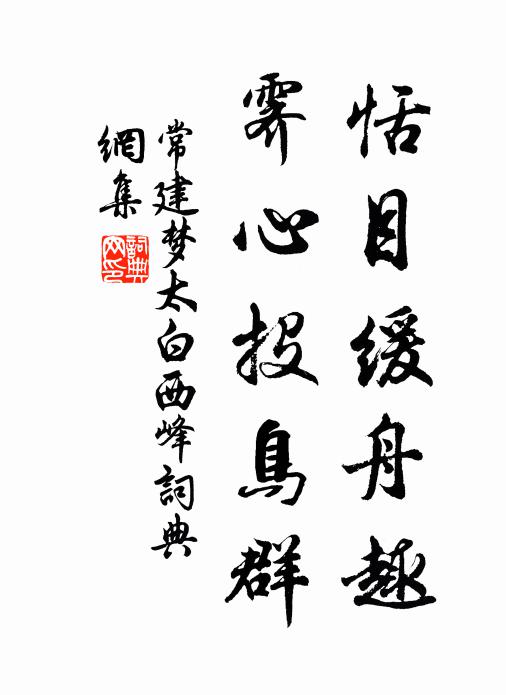 恬目缓舟趣
霁心投鸟群
常建梦太白西峰詞典
網集
詞典
网印